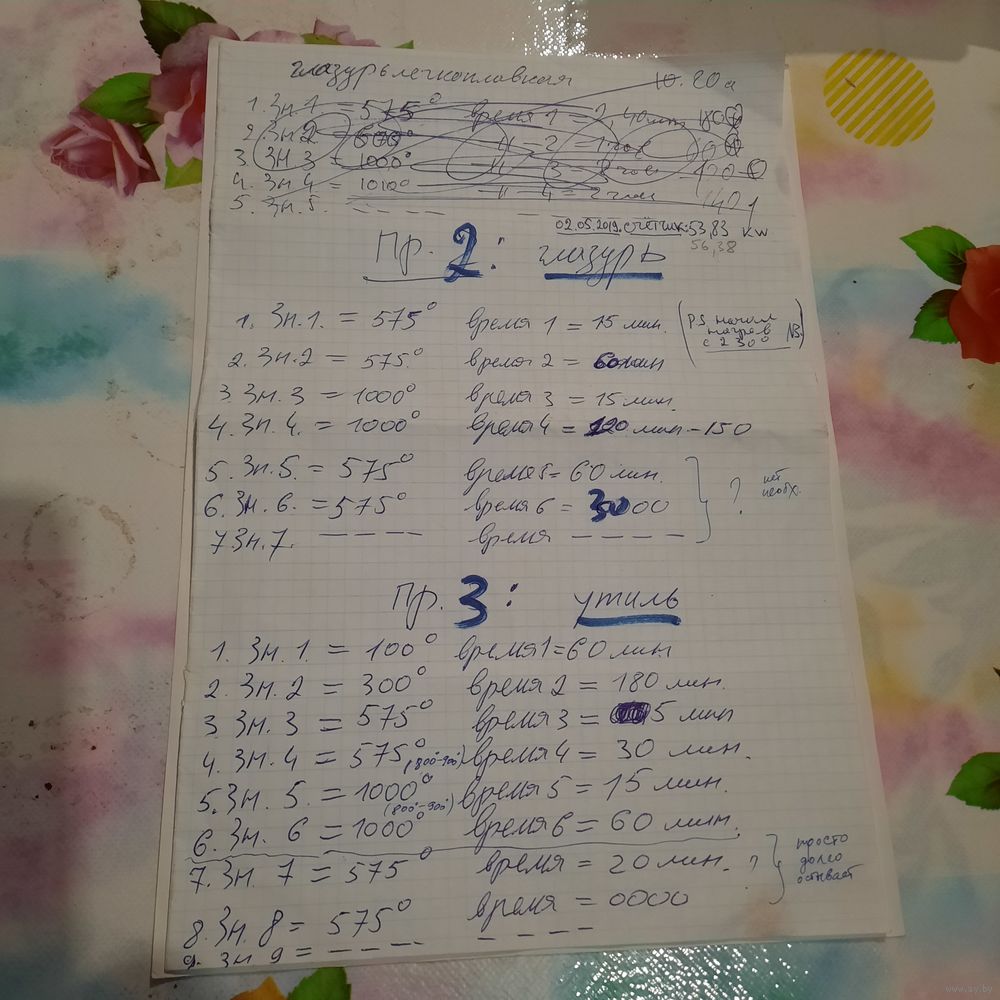 глазурь легкоплавкая 10.20
1. Зн.1 = 575° время 1 =
2. Зн.2 = 600° -"- 2 = 1 час
3. Зн 3 = 1000° -"- 3 =
4. Зн 4 = 1010° -"- 4 = 2 часа
5. Зн.5. - - - -
02.05.2019. счётчик: 53,83 KW
56,38
Пр. 2: глазурь
1. Зн.1. = 575° время 1 = 15 мин. (PS начал нагрев с 230° NB.)
2. Зн.2 = 575° время 2 = 60 мин
3. Зн. 3 = 1000° время 3 = 15 мин.
4. Зн. 4. = 1000° время 4 = 120 мин - 150
5. Зн.5. = 575° время 5 = 60 мин.
6. Зн. 6. = 575° время 6 = 0000 ? нет необх.
7 Зн.7. - - - - время - - - -
Пр. 3: утиль
1. Зн. 1. = 100° время 1 = 60 мин
2. Зн. 2 = 300° время 2 = 180 мин.
3. Зн. 3 = 575° время 3 = 5 мин
4. Зн. 4 = 575° (800°-900°) время 4 = 30 мин.
5. Зн. 5. = 1000° (800°-900°) время 5 = 15 мин.
6. Зн. 6 = 1000° время 6 = 60 мин.
7. Зн. 7 = 575° время = 20 мин. ? просто долго остывает
8. Зн. 8 = 575° время = 0000
9. Зн 9 = - - - - - - - -
www.ay.by